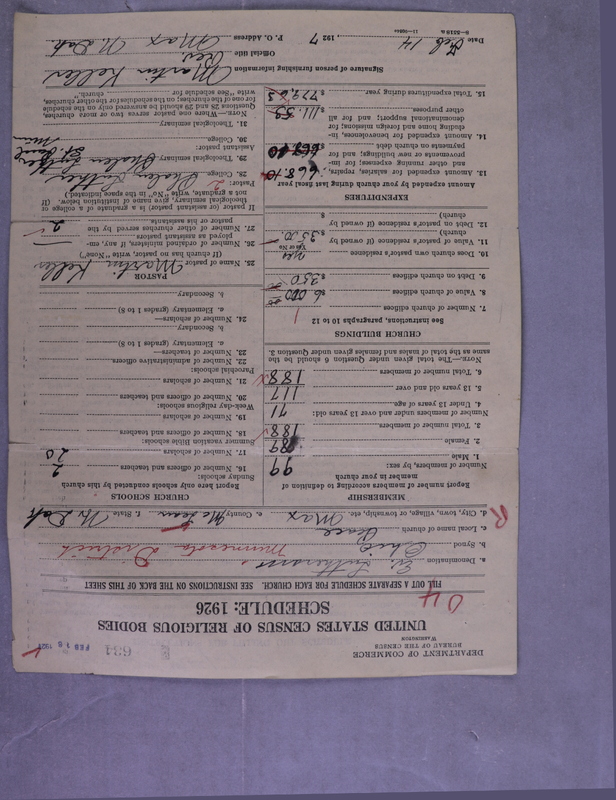 DEPARTMENT OF COMMERCE
BUREAU OF THE CENSUS
WASHINGTON
E 634 FEB 18 1927
UNITED STATES CENSUS OF RELIGIOUS BODIES
SCHEDULE: 1926
04
FILL OUT A SEPARATE SCHEDULE FOR EACH CHURCH. SEE INSTRUCTIONS ON THE BACK OF THIS SHEET
a. Denomination Ev. Lutheran
b. Synod Ohio Minnesota District
c. Local name of church Peace
d. City, town, village, or township, etc. Max e. County McLean f. State N. Dak
R
MEMBERSHIP
Report number of members according to definition of
member in your church
Number of members, by sex:
1. Male 99
2. Female 89
3. Total number of members 188
Number of members under and over 13 years old:
4. Under 13 years of age 71
5. 13 years old and over 117
6. Total number of members 188
NOTE.—The total given under Question 6 should be the
same as the total of males and females given under Question 3.
CHURCH BUILDINGS
See instructions, paragraphs 10 to 12
7. Number of church edifices 1
8. Value of church edifices $ 6000
9. Debt on church edifices $ 350
10. Does church own pastor's residence yes
Yes or No
11. Value of pastor's residence (if owned by
church) $ 3500.
12. Debt on pastor's residence (if owned by
church) $
EXPENDITURES
Amount expended by your church during last fiscal year
13. Amount expended for salaries, repairs,
and other running expenses; for im-
provements or new buildings; and for
payments on church debt 668.10
14. Amount expended for benevolences, in-
cluding home and foreign missions; for
denominational support; and for all
other purposes 111.53
15. Total expenditures during year $ 779.63
CHURCH SCHOOLS
Report here only schools conducted by this church
Sunday schools:
16. Number of officers and teachers 2
17. Number of scholars 20
Summer vacation Bible schools:
18. Number of officers and teachers
19. Number of scholars
Week-day religious schools:
20. Number of officers and teachers
21. Number of scholars
Parochial schools:
22. Number of administrative officers
23. Number of teachers—
a. Elementary (grades 1 to 8)
b. Secondary
24. Number of scholars—
a. Elementary (grades 1 to 8)
b. Secondary
PASTOR
25. Name of pastor Martin Keller
(If church has no pastor, write "None")
26. Number of ordained ministers, if any, em-
ployed as assistant pastors
27. Number of other churches served by the
pastor or his assistants 2
If pastor (or assistant pastor) is a graduate of a college or
theological seminary, give name of institution below. (If
not a graduate, write "No" in the space indicated.)
Pastor: 2
28. College Phalen Luther
29. Theological seminary Phalen Luther
St. Paul
Minn
Assistant pastor:
30. College
31. Theological seminary
NOTE.—Where one pastor serves two or more churches,
Questions 28 and 29 should be answered only on the schedule
for one of the churches; on the schedules for the other churches,
write "See schedule for church."
Signature of person furnishing information Martin Keller
Official title Rev.
Date Feb 14 1927 P. O. Address Max N. Dak.